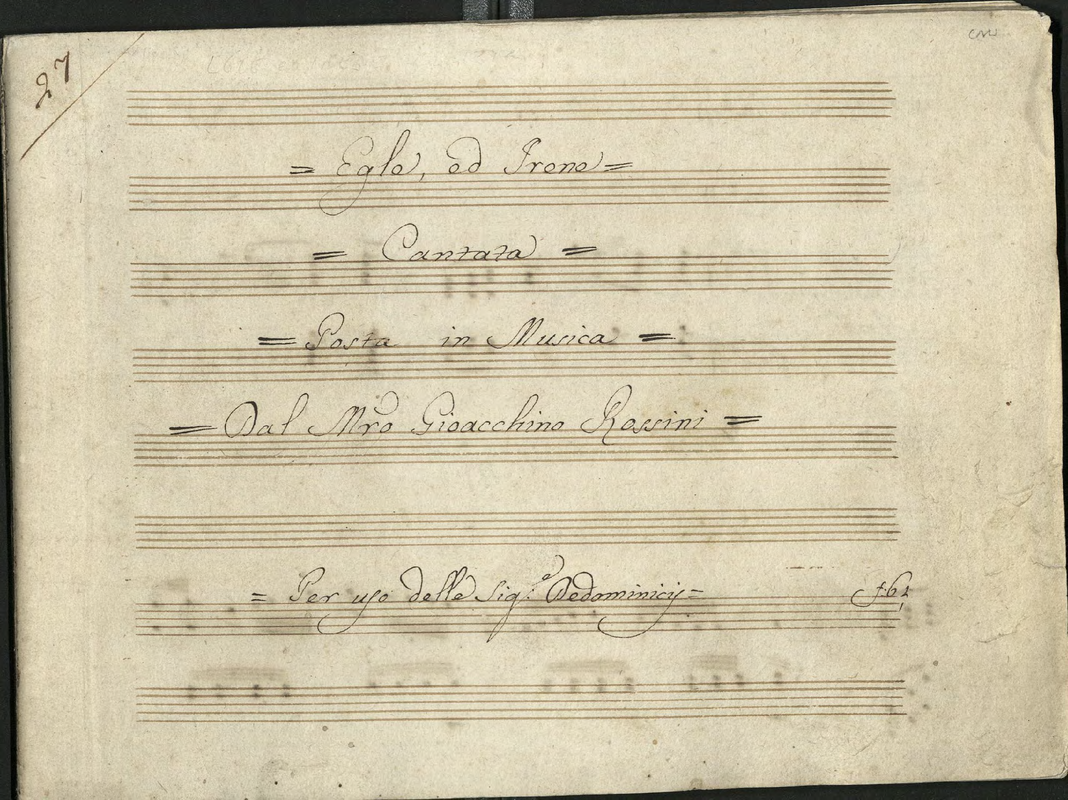 27
= Egle, ed Irene =
= Cantata =
= Posta in Musica =
= Dal Mro Gioacchino Rossini =
= Per uso delle Sig.e Dedominicij =